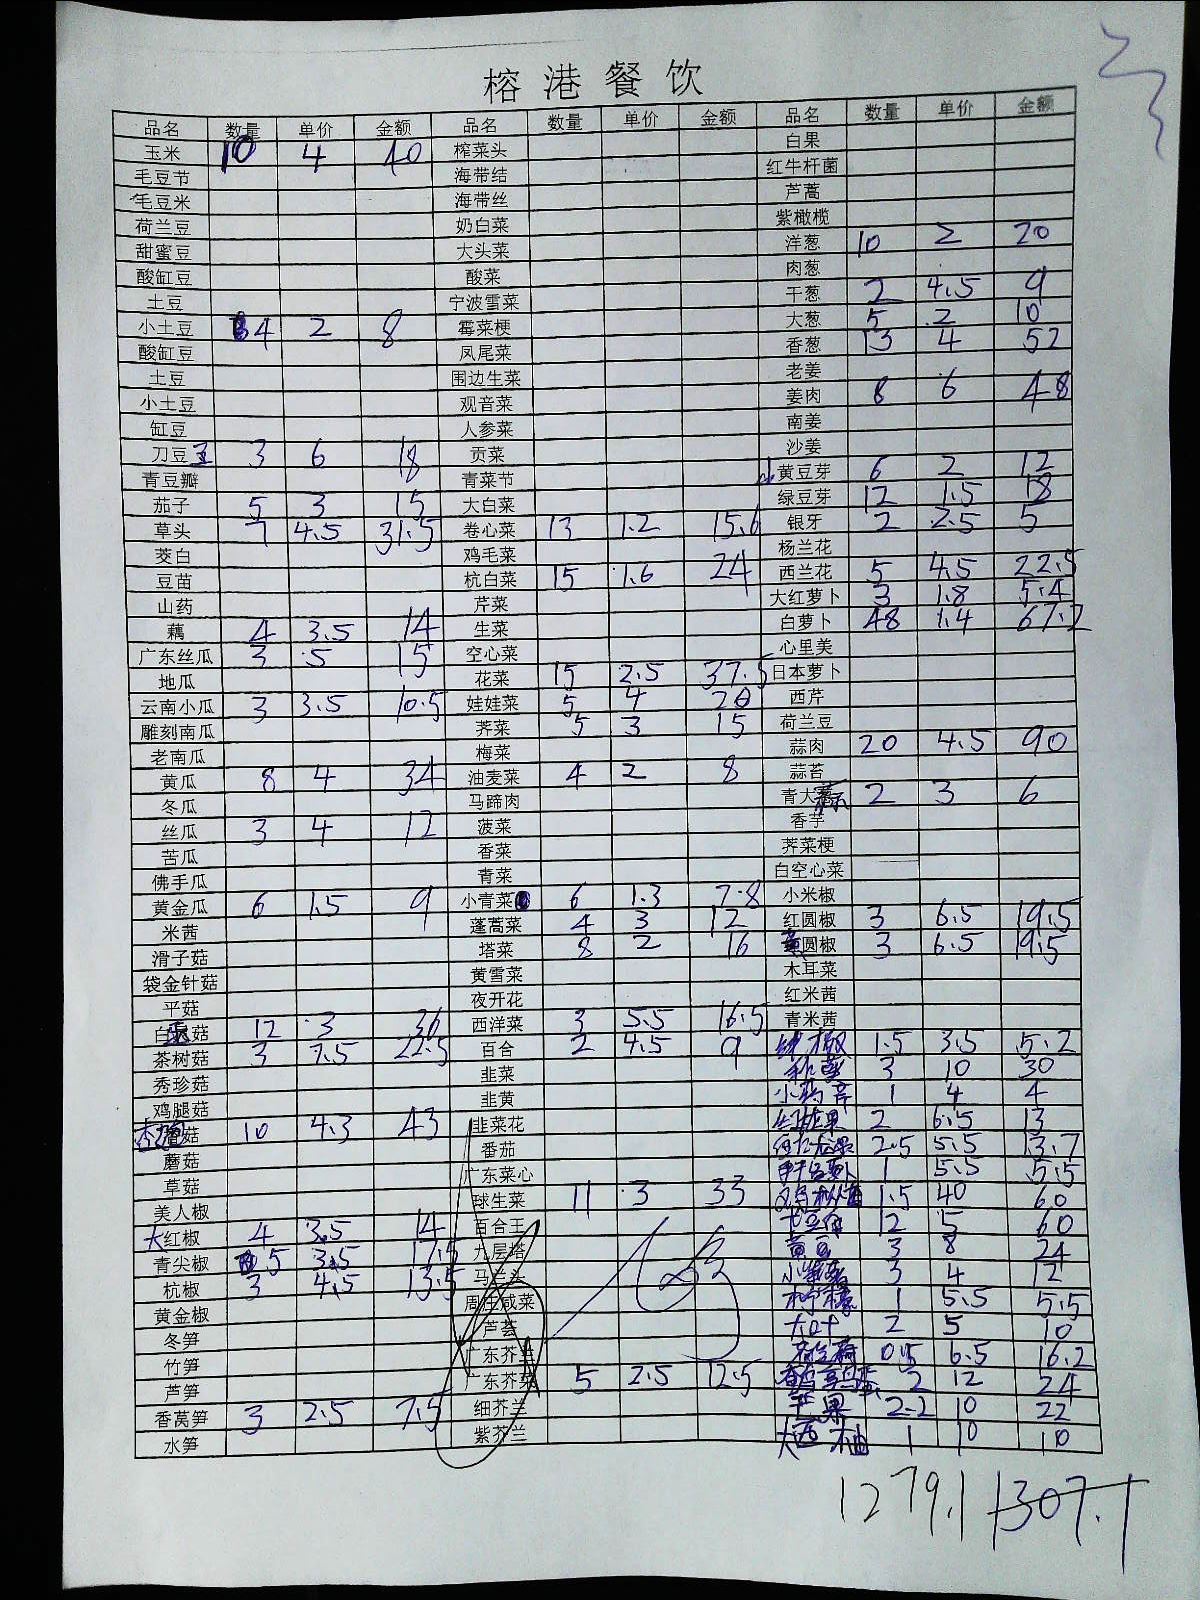 榕港餐饮
品名 数量 单价 金额 品名 数量 单价 金额 品名 数量 单价 金额
玉米 10 4 40 榨菜头 白果
毛豆节 海带结 红牛杆菌
毛豆米 海带丝 芦蒿
荷兰豆 奶白菜 紫橄榄
甜蜜豆 大头菜 洋葱 10 2 20
酸缸豆 酸菜 肉葱
土豆 宁波雪菜 干葱 2 4.5 9
小土豆 4 2 8 霉菜梗 大葱 5 2 10
酸缸豆 凤尾菜 香葱 13 4 52
土豆 围边生菜 老姜
小土豆 观音菜 姜肉 8 6 48
缸豆 人参菜 南姜
刀豆 3 6 18 贡菜 沙姜
青豆瓣 青菜节 黄豆芽 6 2 12
茄子 5 3 15 大白菜 绿豆芽 12 1.5 18
草头 7 4.5 31.5 卷心菜 13 1.2 15.6 银牙 2 2.5 5
茭白 鸡毛菜 杨兰花
豆苗 杭白菜 15 1.6 24 西兰花 5 4.5 22.5
山药 芹菜 大红萝卜 3 1.8 5.4
藕 4 3.5 14 生菜 白萝卜 48 1.4 67.2
广东丝瓜 3 5 15 空心菜 心里美
地瓜 花菜 15 2.5 37.5 日本萝卜
云南小瓜 3 3.5 10.5 娃娃菜 5 4 20 西芹
雕刻南瓜 荠菜 5 3 15 荷兰豆
老南瓜 梅菜 蒜肉 20 4.5 90
黄瓜 8 4 34 油麦菜 4 2 8 蒜苔
冬瓜 马蹄肉 青大蒜 2 3 6
丝瓜 3 4 12 菠菜 香芋
苦瓜 香菜 荠菜梗
佛手瓜 青菜 白空心菜
黄金瓜 6 1.5 9 小青菜 6 1.3 7.8 小米椒
米茜 蓬蒿菜 4 3 12 红圆椒 3 6.5 19.5
滑子菇 塔菜 8 2 16 黄圆椒 3 6.5 19.5
袋金针菇 黄雪菜 木耳菜
平菇 夜开花 红米茜
白菇 12 3 36 西洋菜 3 5.5 16.5 青米茜
茶树菇 3 7.5 22.5 百合 2 4.5 9 1.5 3.5 5.2
秀珍菇 韭菜 3 10 30
鸡腿菇 韭黄 1 4 4
菇 10 4.3 43 韭菜花 2 6.5 13
蘑菇 番茄 2.5 5.5 13.7
草菇 广东菜心 1 5.5 5.5
美人椒 球生菜 11 3 33 1.5 40 60
大红椒 4 3.5 14 百合王 12 5 60
青尖椒 5 3.5 17.5 九层塔 黄豆 3 8 24
杭椒 3 4.5 13.5 马兰头 3 4 12
黄金椒 周庄咸菜 柠檬 1 5.5 5.5
冬笋 芦荟 大叶 2 5 10
竹笋 广东芥兰 0.5 6.5 16.2
芦笋 广东芥菜 5 2.5 12.5 2 12 24
香莴笋 3 2.5 7.5 细芥兰 苹果 2.2 10 22
水笋 紫芥兰 大西柚 1 10 10
1279.1 1307.1